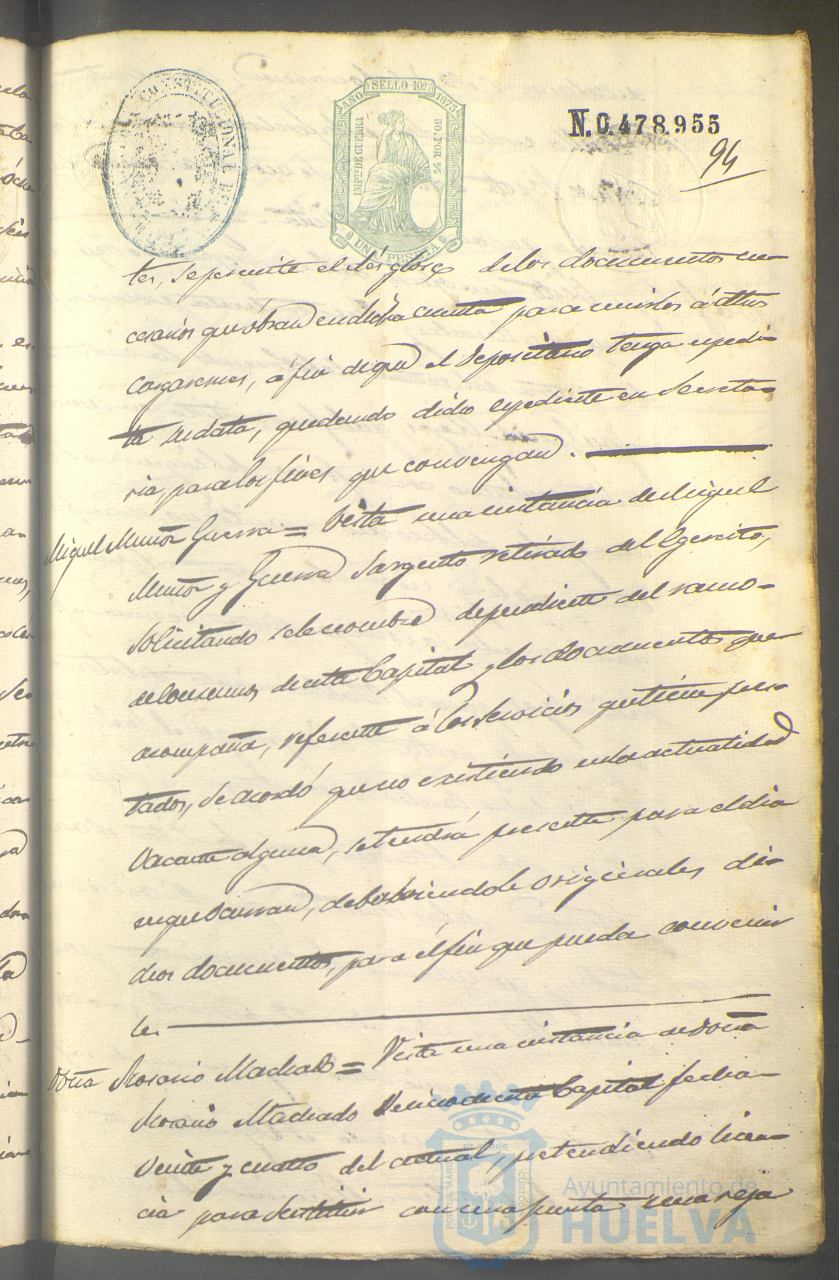 CONSTITUCIONAL DE
AÑO SELLO 10º 1875
IMPTO DE GUERRA
50 POR %
UNA PESETA
N.0.478.955
94
tes, se permite el desglose de los documentos ne-
cesarios que obran en dicha cuenta para unirlos á otros
cargaremes, á fin de que el Depositario tenga espedi-
ta su data, quedando dicho espediente en Secreta-
ria, para los fines que convengan.
Miguel Muñoz Guerra = Vista una instancia de Miguel
Muñoz y Guerra Sargento retirado del Egercito,
Solicitando se le nombre dependiente del ramo
de Consumos de esta Capital y los documentos que
acompaña, referente á los servicios que tiene pres-
tados, se acordó que no existiendo en la actualidad
Vacante alguna, se tendrá presente para el dia
en que ocurran, debolviendole originales di-
chos documentos, para el fin que pueda convenir
le.
Doña Rosario Machado = Vista una instancia de Doña
Rosario Machado Vecina de esta Capital fecha
Veinte y cuatro del actual, pretendiendo licen-
cia para Sustituir con una puerta una reja
Ayuntamiento de
HUELVA